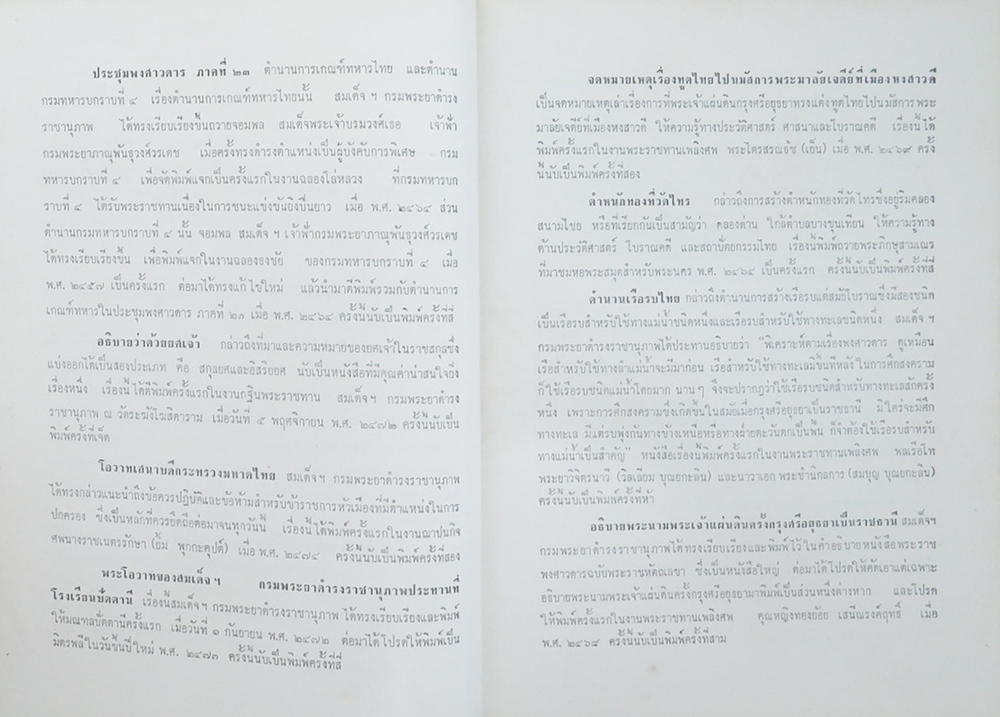 ประชุมพงศาวดาร ภาคที่ ๒๓ ตำนานการเกณฑ์ทหารไทย และตำนาน
กรมทหารบกราบที่ ๔ เรื่องตำนานการเกณฑ์ทหารไทยนั้น สมเด็จ ฯ กรมพระยาดำรง
ราชานุภาพ ได้ทรงเรียบเรียงขึ้นถวายจอมพล สมเด็จพระเจ้าบรมวงศ์เธอ เจ้าฟ้า
กรมพระยาภาณุพันธุวงศ์วรเดช เมื่อครั้งทรงดำรงตำแหน่งเป็นผู้บังคับการพิเศษ กรม
ทหารบกราบที่ ๔ เพื่อจัดพิมพ์แจกเป็นครั้งแรกในงานฉลองโล่หลวง ที่กรมทหารบก
ราบที่ ๔ ได้รับพระราชทานเนื่องในการชนะแข่งขันยิงปืนยาว เมื่อ พ.ศ. ๒๔๖๔ ส่วน
ตำนานกรมทหารบกราบที่ ๔ นั้น จอมพล สมเด็จ ฯ เจ้าฟ้ากรมพระยาภาณุพันธุวงศ์วรเดช
ได้ทรงเรียบเรียงขึ้น เพื่อพิมพ์แจกในงานฉลองธงชัย ของกรมทหารบกราบที่ ๔ เมื่อ
พ.ศ. ๒๔๕๗ เป็นครั้งแรก ต่อมาได้ทรงแก้ไขใหม่ แล้วนำมาตีพิมพ์รวมกับตำนานการ
เกณฑ์ทหารในประชุมพงศาวดาร ภาคที่ ๒๓ เมื่อ พ.ศ. ๒๔๖๔ ครั้งนี้นับเป็นพิมพ์ครั้งที่สี่
อธิบายว่าด้วยยศเจ้า กล่าวถึงที่มาและความหมายของยศเจ้าในราชสกุลซึ่ง
แบ่งออกได้เป็นสองประเภท คือ สกุลยศและอิสริยยศ นับเป็นหนังสือที่มีคุณค่าน่าสนใจยิ่ง
เรื่องหนึ่ง เรื่องนี้ได้ตีพิมพ์ครั้งแรกในงานกฐินพระราชทาน สมเด็จ ฯ กรมพระยาดำรง
ราชานุภาพ ณ วัดระฆังโฆสิตาราม เมื่อวันที่ ๕ พฤศจิกายน พ.ศ. ๒๔๗๒ ครั้งนี้นับเป็น
พิมพ์ครั้งที่เจ็ด
โอวาทเสนาบดีกระทรวงมหาดไทย สมเด็จ ฯ กรมพระยาดำรงราชานุภาพ
ได้ทรงกล่าวแนะนำถึงข้อควรปฏิบัติและข้อห้ามสำหรับข้าราชการหัวเมืองที่มีตำแหน่งในการ
ปกครอง ซึ่งเป็นหลักที่ควรยึดถือต่อมาจนทุกวันนี้ เรื่องนี้ได้พิมพ์ครั้งแรกในงานฌาปนกิจ
ศพนางราชเนตรรักษา (ยิ้ม พุกกะคุปต์) เมื่อ พ.ศ. ๒๔๗๔ ครั้งนี้นับเป็นพิมพ์ครั้งที่สอง
พระโอวาทของสมเด็จ ฯ กรมพระยาดำรงราชานุภาพประทานที่
โรงเรียนปัตตานี เรื่องนี้สมเด็จ ฯ กรมพระยาดำรงราชานุภาพ ได้ทรงเรียบเรียงและพิมพ์
ให้มณฑลปัตตานีครั้งแรก เมื่อวันที่ ๑ กันยายน พ.ศ. ๒๔๗๒ ต่อมาได้โปรดให้พิมพ์เป็น
มิตรพลีในวันขึ้นปีใหม่ พ.ศ. ๒๔๗๓ ครั้งนี้นับเป็นพิมพ์ครั้งที่สี่
จดหมายเหตุเรื่องทูตไทยไปนมัสการพระมาลัยเจดีย์ที่เมืองหงสาวดี
เป็นจดหมายเหตุเล่าเรื่องการที่พระเจ้าแผ่นดินกรุงศรีอยุธยาทรงแต่งทูตไทยไปนมัสการพระ
มาลัยเจดีย์ที่เมืองหงสาวดี ให้ความรู้ทางประวัติศาสตร์ ศาสนาและโบราณคดี เรื่องนี้ได้
พิมพ์ครั้งแรกในงานพระราชทานเพลิงศพ พระไตรสรณธัช (เย็น) เมื่อ พ.ศ. ๒๔๖๙ ครั้ง
นี้นับเป็นพิมพ์ครั้งที่สอง
ตำหนักทองที่วัดไทร กล่าวถึงการสร้างตำหนักทองที่วัดไทรซึ่งอยู่ริมคลอง
สนามไชย หรือที่เรียกกันเป็นสามัญว่า คลองด่าน ใกล้ตำบลบางขุนเทียน ให้ความรู้ทาง
ด้านประวัติศาสตร์ โบราณคดี และสถาปัตยกรรมไทย เรื่องนี้พิมพ์ถวายพระภิกษุสามเณร
ที่มาชมหอพระสมุดสำหรับพระนคร พ.ศ. ๒๔๖๔ เป็นครั้งแรก ครั้งนี้นับเป็นพิมพ์ครั้งที่สี่
ตำนานเรือรบไทย กล่าวถึงตำนานการสร้างเรือรบแต่สมัยโบราณซึ่งมีสองชนิด
เป็นเรือรบสำหรับใช้ทางแม่น้ำชนิดหนึ่งและเรือรบสำหรับใช้ทางทะเลชนิดหนึ่ง สมเด็จ ฯ
กรมพระยาดำรงราชานุภาพได้ประทานอธิบายว่า "พิเคราะห์ตามเรื่องพงศาวดาร ดูเหมือน
เรือสำหรับใช้ทางลำแม่น้ำจะมีมาก่อน เรือสำหรับใช้ทางทะเลมีขึ้นทีหลัง ในการศึกสงคราม
ก็ใช้เรือรบชนิดแม่น้ำโดยมาก นาน ๆ จึงจะปรากฏว่าใช้เรือรบชนิดสำหรับทางทะเลสักครั้ง
หนึ่ง เพราะการศึกสงครามซึ่งเกิดขึ้นในสมัยเมื่อกรุงศรีอยุธยาเป็นราชธานี มิใคร่จะมีศึก
ทางทะเล มีแต่รบพุ่งกันทางข้างเหนือหรือทางฝ่ายตะวันตกเป็นพื้น ก็จำต้องใช้เรือรบสำหรับ
ทางแม่น้ำเป็นสำคัญ" หนังสือเรื่องนี้พิมพ์ครั้งแรกในงานพระราชทานเพลิงศพ พลเรือโท
พระยาวิจิตรนาวี (วิลเลียม บุณยกะลิน) และนาวาเอก พระชำนิกลการ (สมบุญ บุณยกะลิน)
ครั้งนี้นับเป็นพิมพ์ครั้งที่ห้า
อธิบายพระนามพระเจ้าแผ่นดินครั้งกรุงศรีอยุธยาเป็นราชธานี สมเด็จฯ
กรมพระยาดำรงราชานุภาพได้ทรงเรียบเรียงและพิมพ์ไว้ในคำอธิบายหนังสือพระราช
พงศาวดารฉบับพระราชหัตถเลขา ซึ่งเป็นหนังสือใหญ่ ต่อมาได้โปรดให้คัดเอาแต่เฉพาะ
อธิบายพระนามพระเจ้าแผ่นดินครั้งกรุงศรีอยุธยามาพิมพ์เป็นส่วนหนึ่งต่างหาก และโปรด
ให้พิมพ์ครั้งแรกในงานพระราชทานเพลิงศพ คุณหญิงทองย้อย เสนีณรงค์ฤทธิ์ เมื่อ
พ.ศ. ๒๔๖๘ ครั้งนี้นับเป็นพิมพ์ครั้งที่สาม